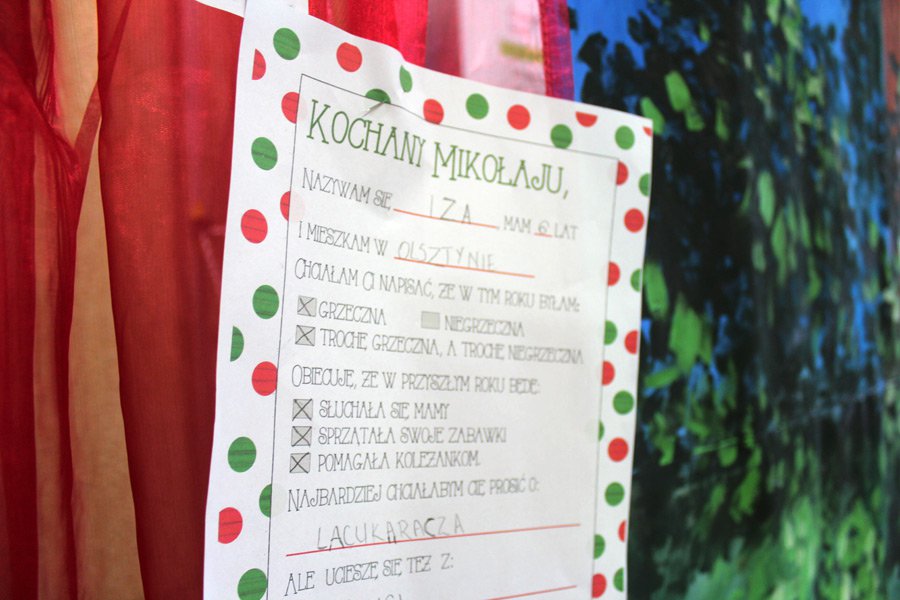 KOCHANY MIKOŁAJU,
NAZYWAM SIĘ IZA, MAM 6 LAT
I MIESZKAM W OLSZTYNIE
CHCIAŁAM CI NAPISAĆ, ŻE W TYM ROKU BYŁAM:
GRZECZNA NIEGRZECZNA
TROCHĘ GRZECZNA, A TROCHĘ NIEGRZECZNA
OBIECUJĘ, ŻE W PRZYSZŁYM ROKU BĘDĘ:
SŁUCHAŁA SIĘ MAMY
SPRZĄTAŁA SWOJE ZABAWKI
POMAGAŁA KOLEŻANKOM.
NAJBARDZIEJ CHCIAŁABYM CIĘ PROSIĆ O:
LACUKARACZA
ALE UCIESZĘ SIĘ TEŻ Z: